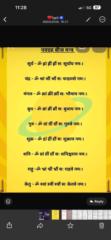 11:28
नवग्रह बीज मन्त्र
सूर्य - ॐ ह्रां ह्रीं ह्रौं सः सूर्याय नमः ।
चंद्र - ॐ श्रां श्रीं श्रौं सः चन्द्रमसे नमः ।
मंगल - ॐ क्रां क्रीं क्रौं सः भौमाय नमः ।
बुध - ॐ ब्रां ब्रीं ब्रौं सः बुधाय नमः ।
गुरु - ॐ ग्रां ग्रीं ग्रौं सः गुरवे नमः ।
शुक्र - ॐ द्रां द्रीं द्रौं सः शुक्राय नमः ।
शनि - ॐ प्रां प्रीं प्रौं सः शनैश्चराय नमः ।
राहु - ॐ भ्रां भ्रीं भ्रौं सः राहवे नमः ।
केतु - ॐ स्रां स्रीं स्रौं सः केतवे नमः ।